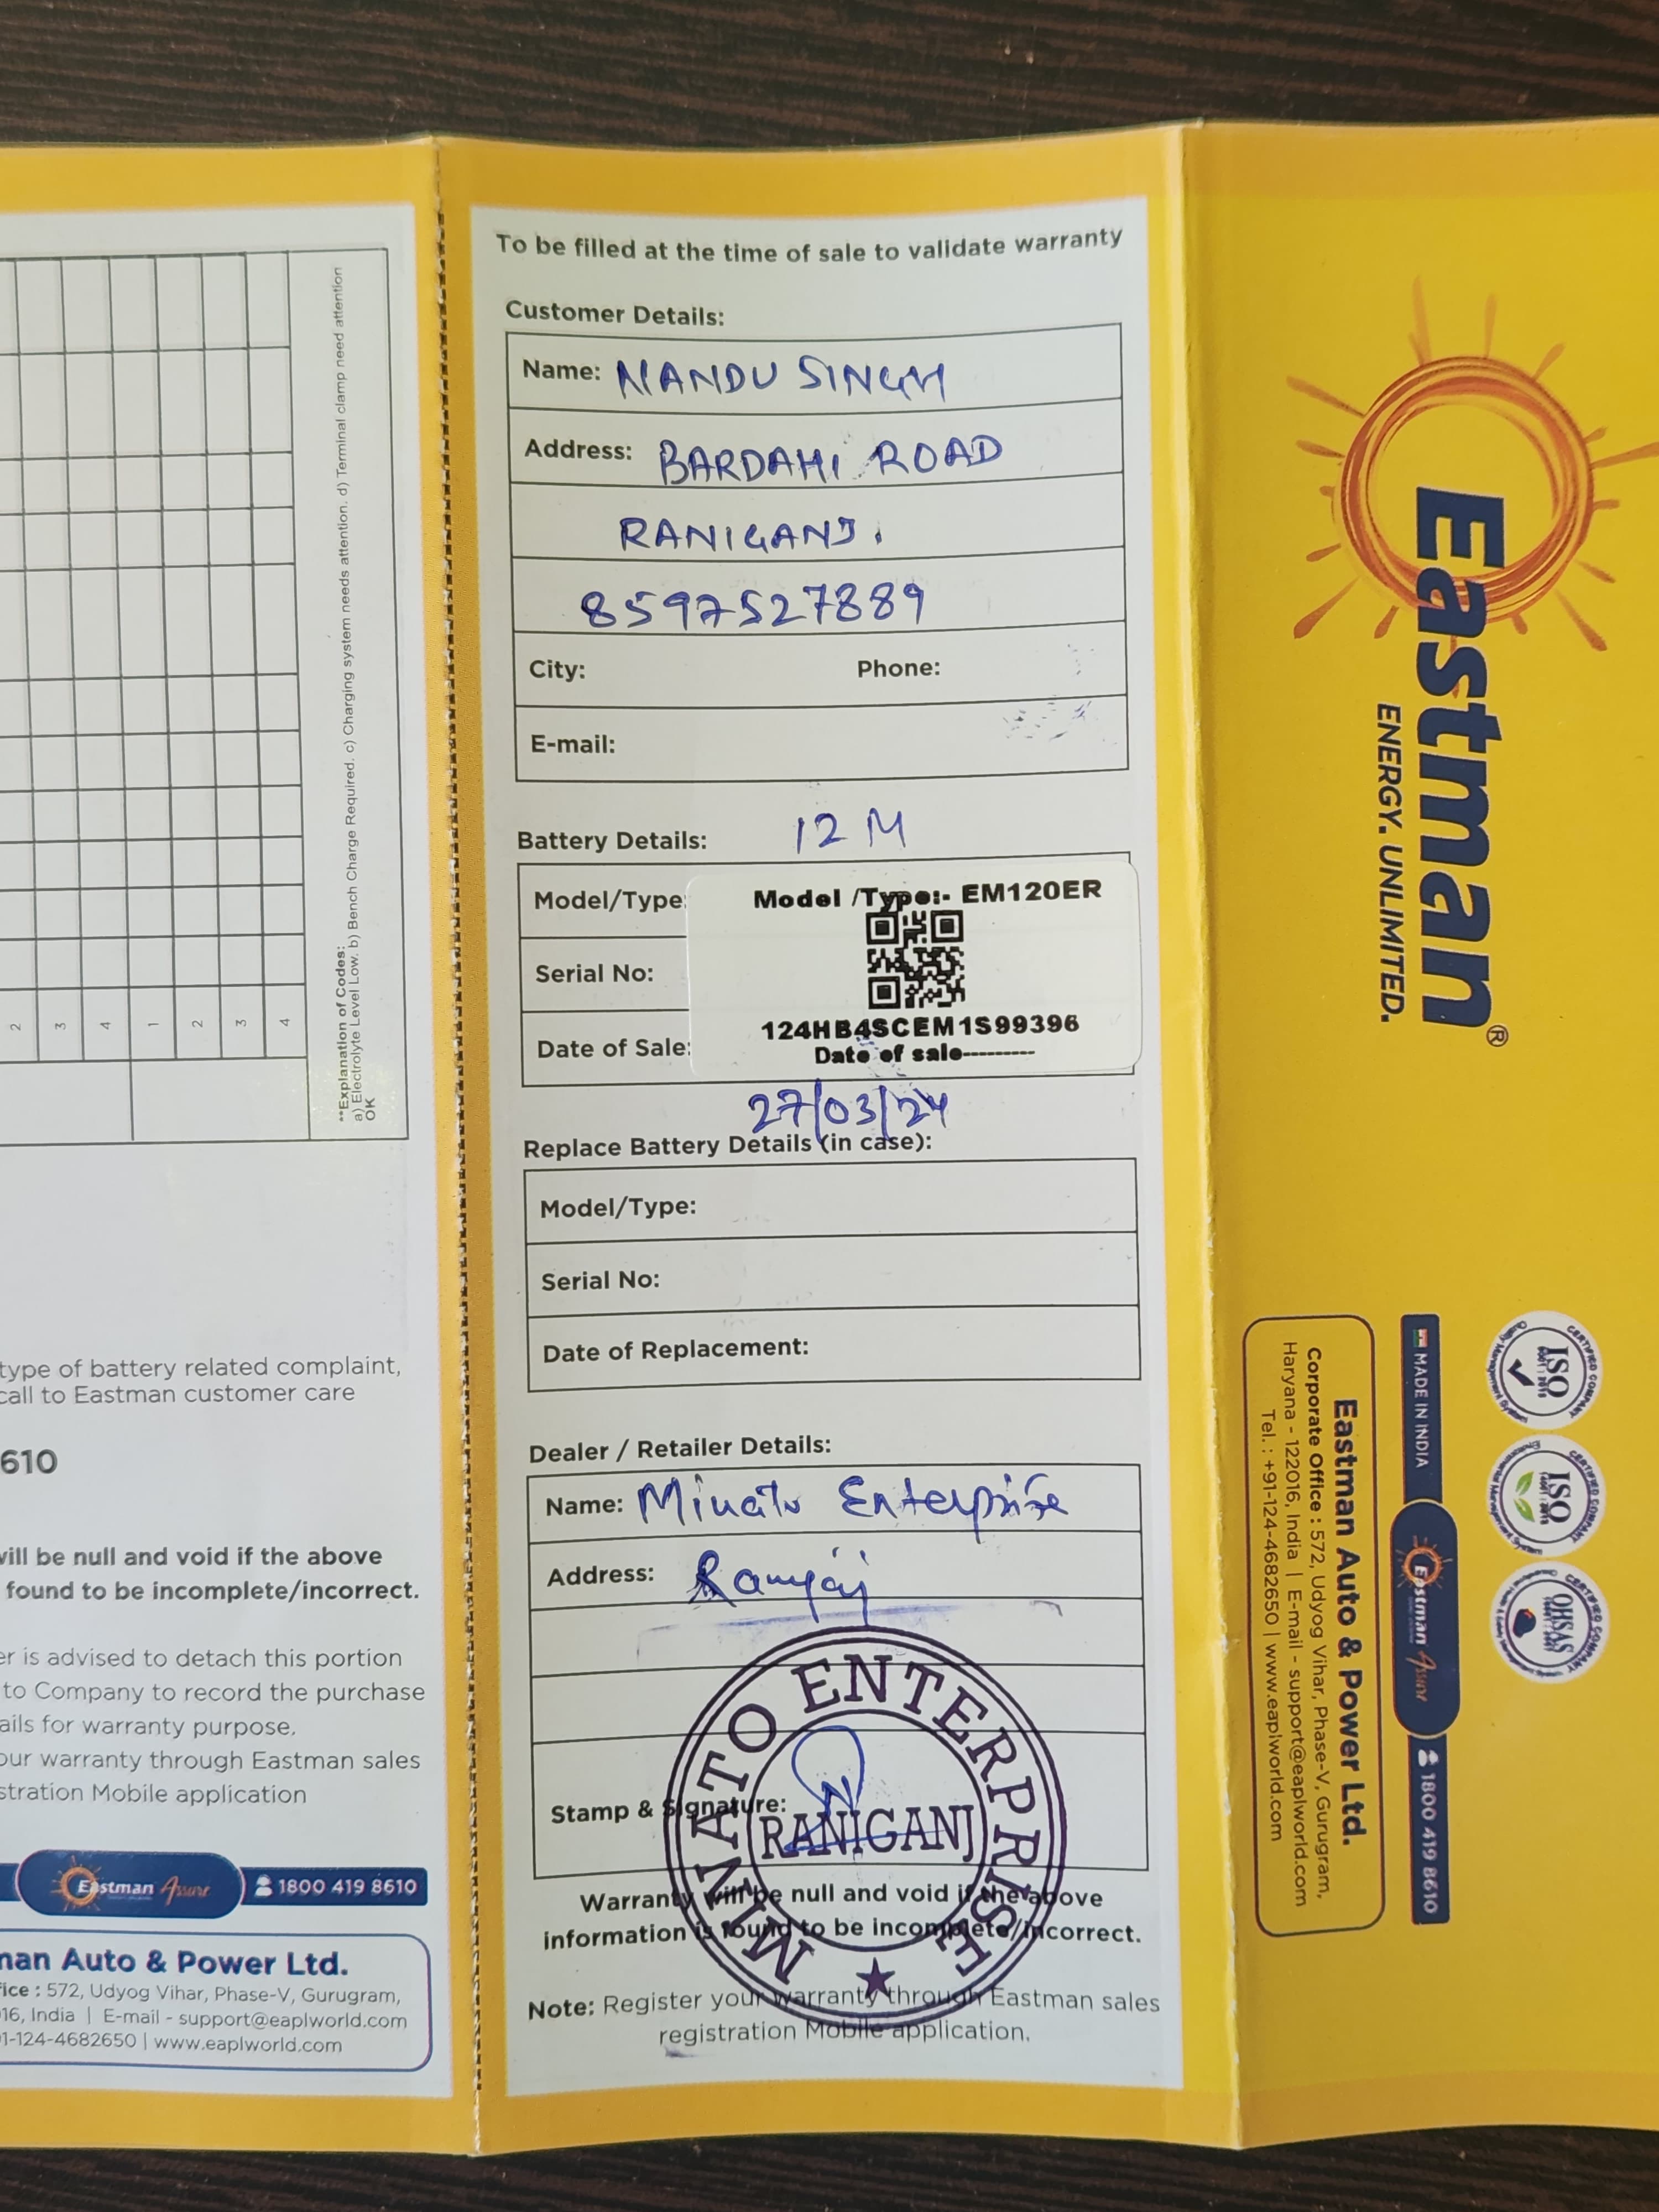 2 3 4 1 2 3 4
**Explanation of Codes:
a) Electrolyte Level Low. b) Bench Charge Required. c) Charging system needs attention. d) Terminal clamp need attention
OK
type of battery related complaint,
call to Eastman customer care
610
will be null and void if the above
found to be incomplete/incorrect.
er is advised to detach this portion
to Company to record the purchase
ails for warranty purpose.
our warranty through Eastman sales
stration Mobile application
Eastman Assure 1800 419 8610
man Auto & Power Ltd.
fice : 572, Udyog Vihar, Phase-V, Gurugram,
16, India | E-mail - support@eaplworld.com
1-124-4682650 | www.eaplworld.com
To be filled at the time of sale to validate warranty
Customer Details:
Name: NANDU SINGH
Address: BARDAHI ROAD
RANIGANJ.
8597527889
City: Phone:
E-mail:
Battery Details: 12 M
Model/Type: Model /Type:- EM120ER
Serial No:
124HB4SCEM1S99396
Date of Sale: Date of sale---------
27/03/24
Replace Battery Details (in case):
Model/Type:
Serial No:
Date of Replacement:
Dealer / Retailer Details:
Name: Minato Enterprise
Address:
Stamp & Signature:
MINATO ENTERPRISE
RANIGANJ
Warranty will be null and void if the above
information is found to be incomplete/incorrect.
Note: Register your warranty through Eastman sales
registration Mobile application.
Eastman®
ENERGY. UNLIMITED.
CERTIFIED COMPANY
ISO
9001 : 2015
Quality Management System
CERTIFIED COMPANY
ISO
14001 : 2015
CERTIFIED COMPANY
OHSAS
MADE IN INDIA Eastman Assure 1800 419 8610
Eastman Auto & Power Ltd.
Corporate Office : 572, Udyog Vihar, Phase-V, Gurugram,
Haryana - 122016, India | E-mail - support@eaplworld.com
Tel. : +91-124-4682650 | www.eaplworld.com